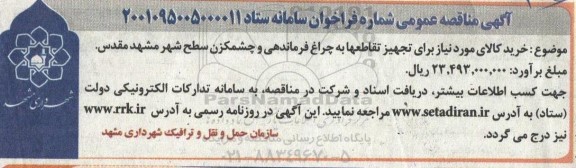 آگهی مناقصه عمومی شماره فراخوان سامانه ستاد ۲۰۰۱۰۹۵۰۰۵۰۰۰۰۱۱
موضوع: خرید کالای مورد نیاز برای تجهیز تقاطعها به چراغ فرماندهی و چشمکزن سطح شهر مشهد مقدس.
مبلغ برآورد: ۲۳.۴۹۳.۰۰۰.۰۰۰ ریال.
جهت کسب اطلاعات بیشتر، دریافت اسناد و شرکت در مناقصه، به سامانه تدارکات الکترونیکی دولت
(ستاد) به آدرس www.setadiran.ir مراجعه نمایید. این آگهی در روزنامه رسمی به آدرس www.rrk.ir
نیز درج می گردد.
سازمان حمل و نقل و ترافیک شهرداری مشهد
شهرداری مشهد
ParsNamadData
۰۲۱-۸۸۳۴۹۶۷۰-۵